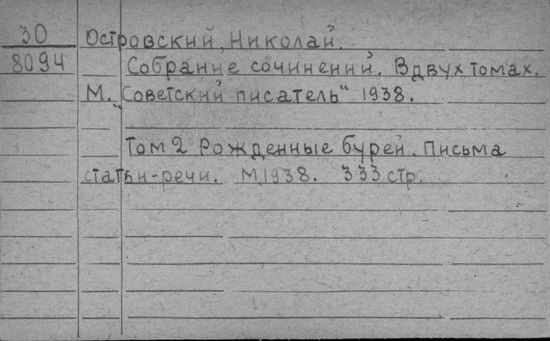 30 Островский, Николай.
8094 Собрание сочинений. В двух томах.
М. "Советский писатель" 1938.
Том 2 Рожденные бурей. Письма
статьи-речи. М.1938. 333 стр.